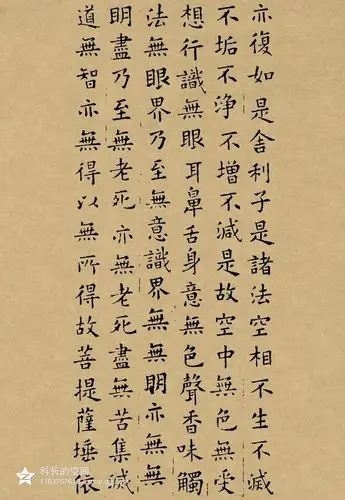 亦復如是舍利子是諸法空相不生不滅
不垢不淨不增不減是故空中無色無受
想行識無眼耳鼻舌身意無色聲香味觸
法無眼界乃至無意識界無無明亦無無
明盡乃至無老死亦無老死盡無苦集滅
道無智亦無得以無所得故菩提薩埵依
科长的空间